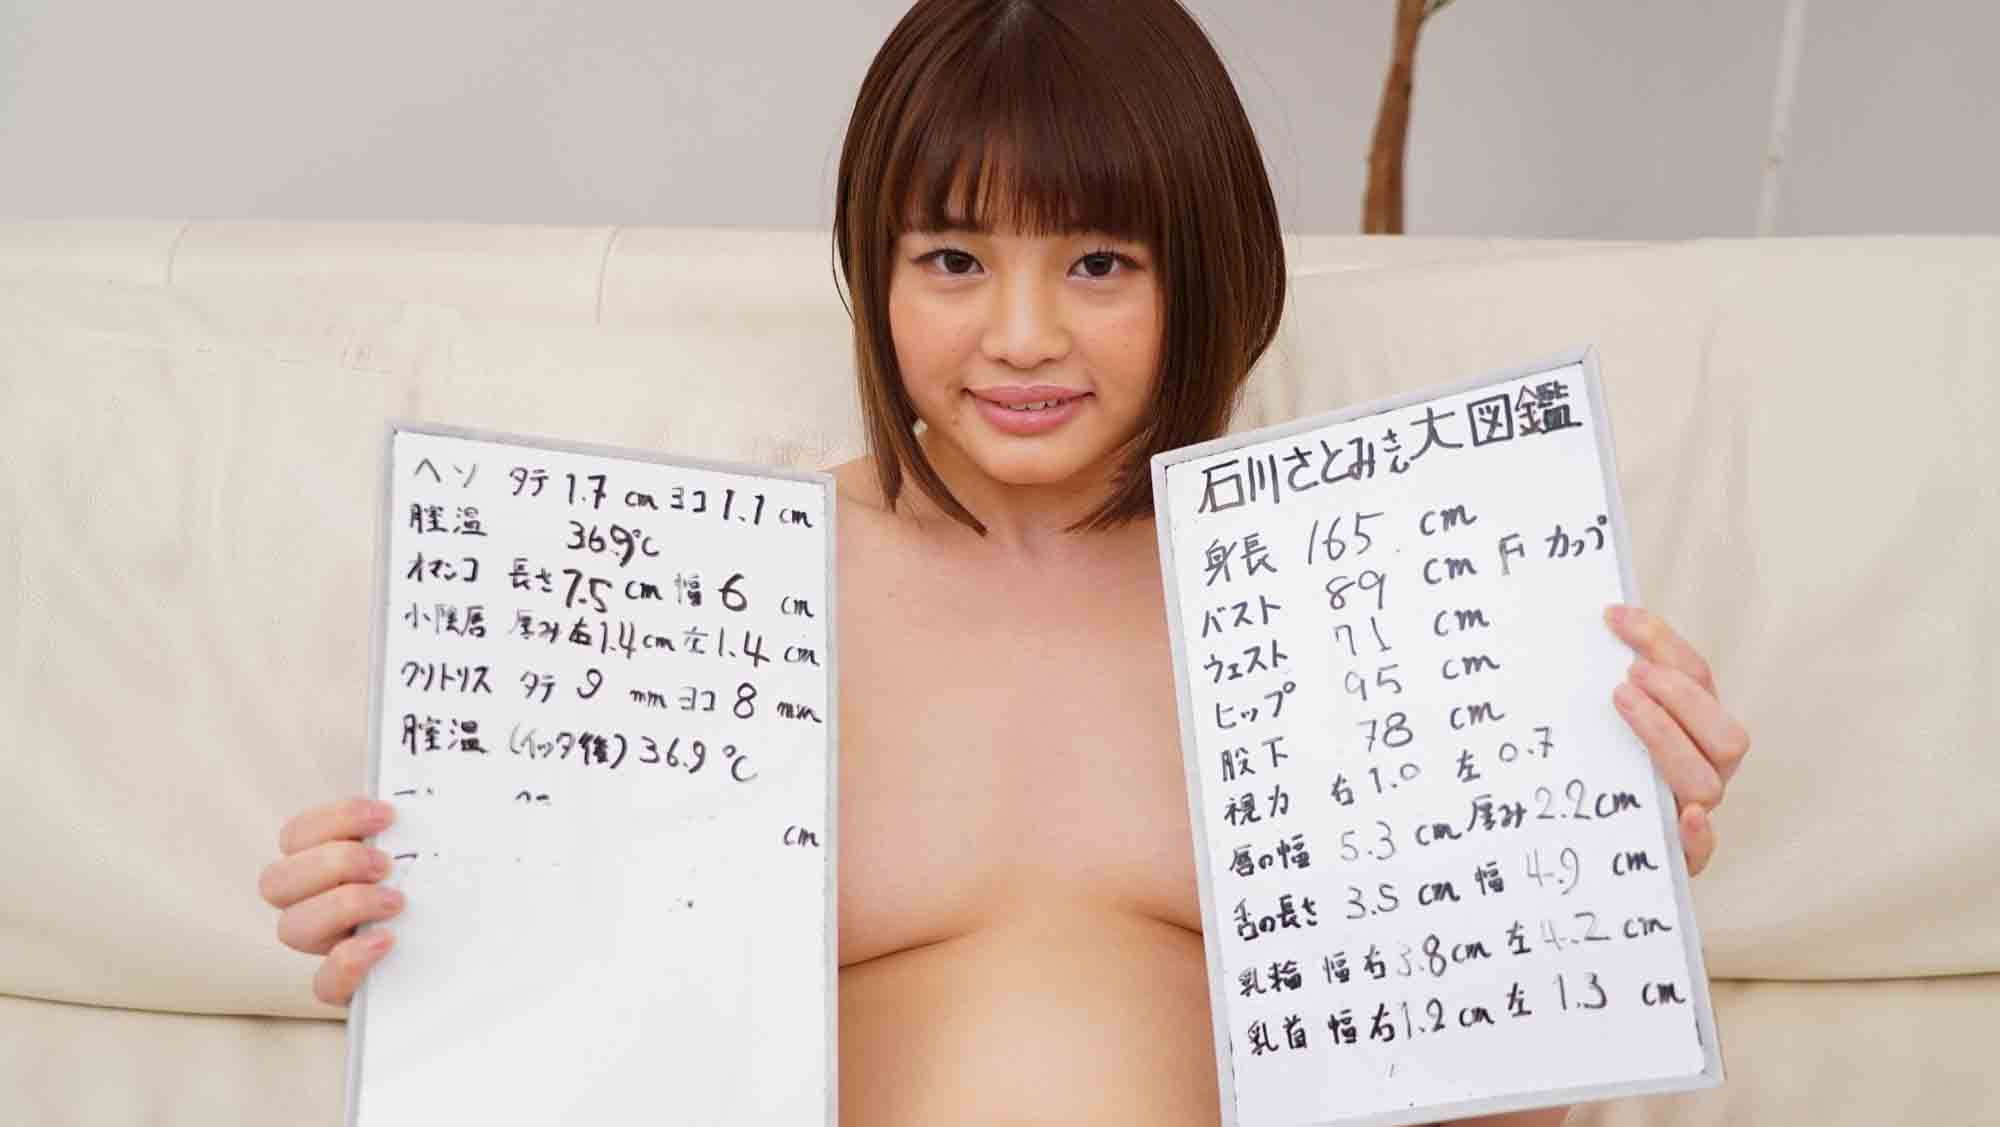 ヘソ タテ 1.7 cm ヨコ 1.1 cm
膣温 36.9℃
オマンコ 長さ 7.5 cm 幅 6 cm
小陰唇 厚み 右 1.4 cm 左 1.4 cm
クリトリス タテ 9 mm ヨコ 8 mm
膣温 (イッタ後) 36.9℃
cm
石川さとみさん大図鑑
身長 165 cm
バスト 89 cm F カップ
ウェスト 71 cm
ヒップ 95 cm
股下 78 cm
視力 右 1.0 左 0.7
唇の幅 5.3 cm 厚み 2.2 cm
舌の長さ 3.5 cm 幅 4.9 cm
乳輪 幅 右 3.8 cm 左 4.2 cm
乳首 幅 右 1.2 cm 左 1.3 cm